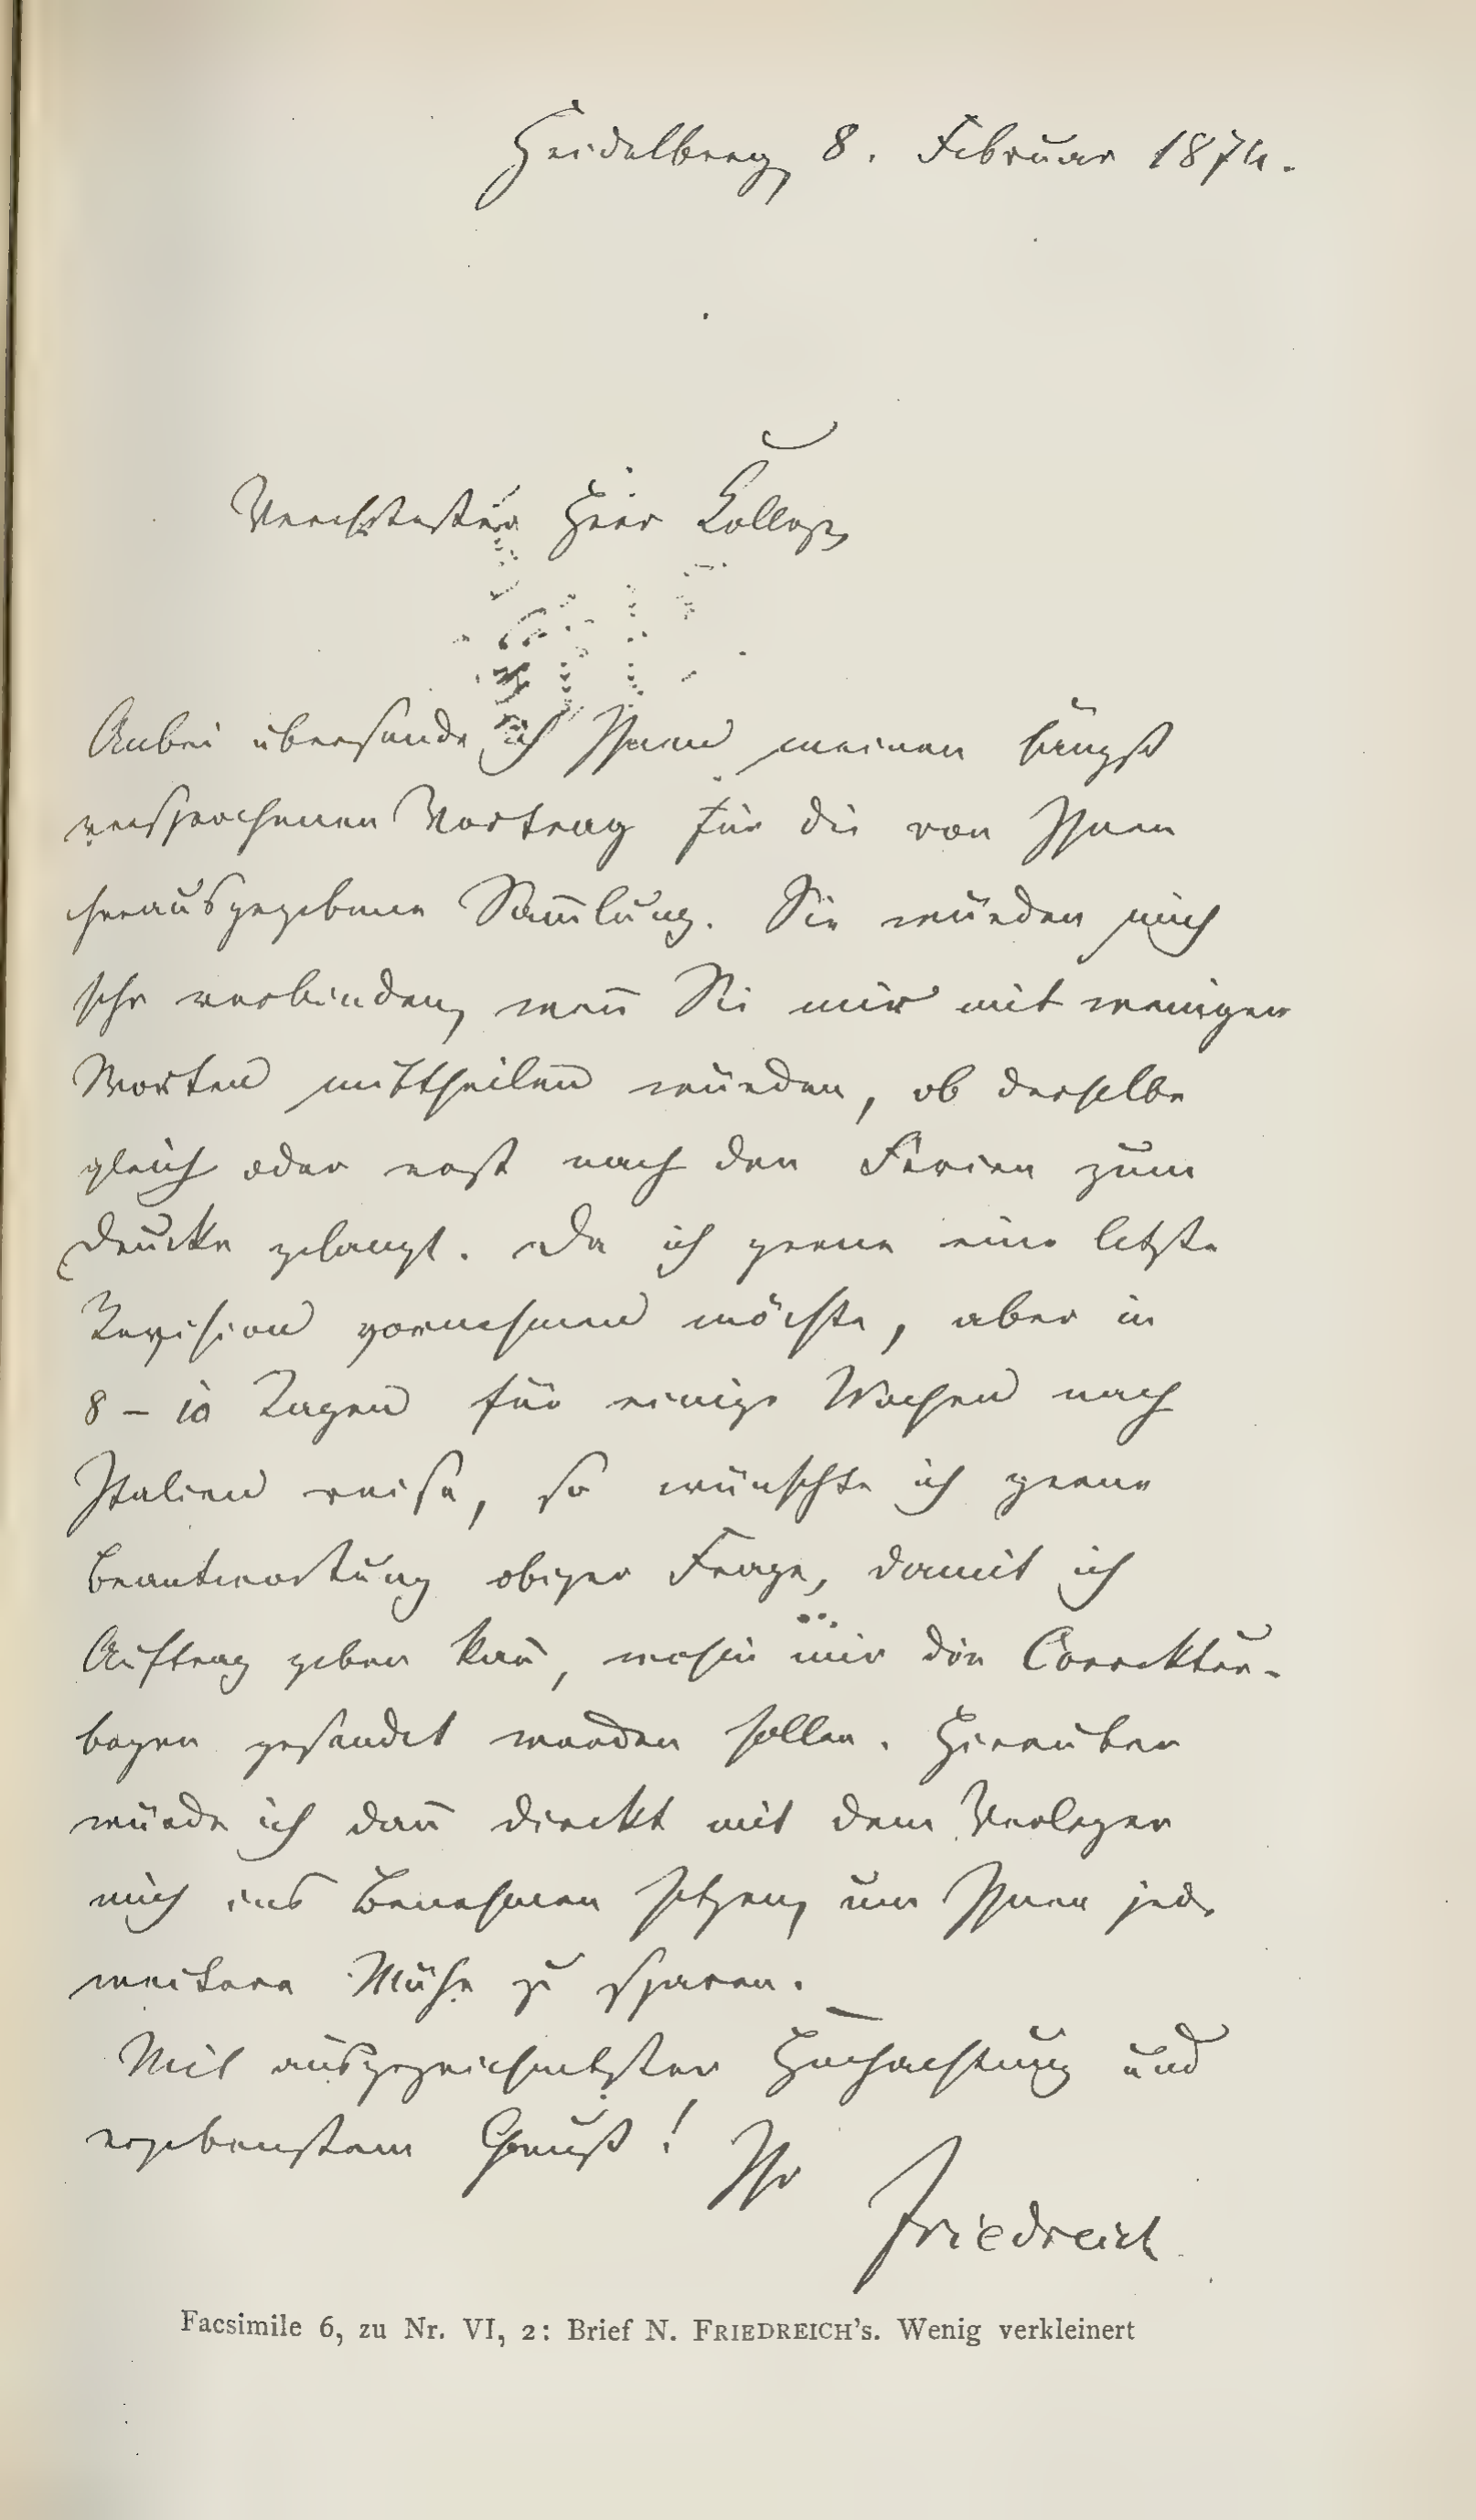 Heidelberg, 8. Februar 1874.
Verehrtester Herr College,
Anbei übersende ich Ihnen meinen längst
versprochenen Vortrag für die von Ihnen
herausgegebene Sam̅lung. Sie würden mich
sehr verbinden, wen̅ Sie mir mit wenigen
Worten mittheilen würden, ob derselbe
gleich oder erst nach den Ferien zum
Drucke gelangt. Da ich gerne eine letzte
Revision vornehmen möchte, aber in
8 – 10 Tagen für einige Wochen nach
Italien reise, so wünschte ich gerne
Beantwortung obiger Frage, damit ich
Auftrag geben kan̅, wohin mir die Correktur-
bogen gesandt werden sollen. Hierüber
würde ich dan̅ direkt mit dem Verleger
mich ins Benehmen setzen, um Ihnen jede
weitere Mühe zu sparen.
Mit ausgezeichnetster Hochachtung und
ergebenstem Gruß! Ihr
Friedreich
Facsimile 6, zu Nr. VI, 2: Brief N. FRIEDREICH's. Wenig verkleinert